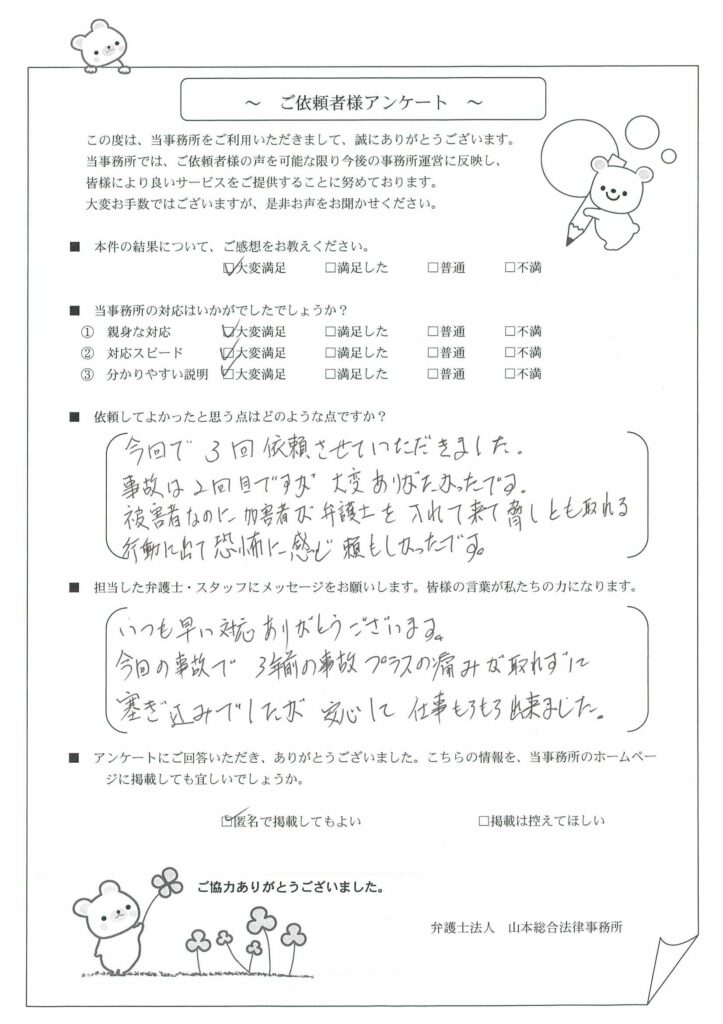 ～　ご依頼者様アンケート　～
この度は、当事務所をご利用いただきまして、誠にありがとうございます。
当事務所では、ご依頼者様の声を可能な限り今後の事務所運営に反映し、
皆様により良いサービスをご提供することに努めております。
大変お手数ではございますが、是非お声をお聞かせください。
■　本件の結果について、ご感想をお教えください。
☑大変満足　□満足した　□普通　□不満
■　当事務所の対応はいかがでしたでしょうか？
①　親身な対応　☑大変満足　□満足した　□普通　□不満
②　対応スピード　☑大変満足　□満足した　□普通　□不満
③　分かりやすい説明　☑大変満足　□満足した　□普通　□不満
■　依頼してよかったと思う点はどのような点ですか？
今回で 3回依頼させていただきました。
事故は2回目ですが 大変ありがたかったです。
被害者なのに加害者が弁護士を入れて来て脅しとも取れる
行動に出て恐怖に感じ頼もしかったです。
■　担当した弁護士・スタッフにメッセージをお願いします。皆様の言葉が私たちの力になります。
いつも早い対応ありがとうございます。
今回の事故で 3年前の事故プラスの痛みが取れずに
塞ぎ込みでしたが 安心して 仕事もろもろ出来ました。
■　アンケートにご回答いただき、ありがとうございました。こちらの情報を、当事務所のホームペー
ジに掲載しても宜しいでしょうか。
☑匿名で掲載してもよい　□掲載は控えてほしい
ご協力ありがとうございました。
弁護士法人　山本総合法律事務所